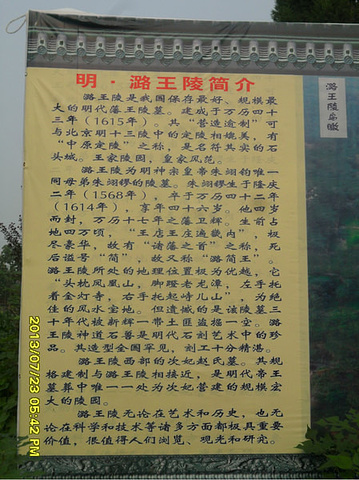 明·潞王陵简介
潞王陵是我国保存最好、规模最
大的明代藩王陵墓。建成于万历四十
三年(1615年)。其“营造逾制”可
与北京明十三陵中的定陵相媲美,有
“中原定陵”之称,是名符其实的石
头城。王家陵园,皇家风范。
潞王陵为明神宗皇帝朱翊钧唯一
同母弟朱翊镠的陵墓。朱翊镠生于隆庆
二年(1568年),卒于万历四十二年
(1614年),享年四十六岁。他四岁
而封,万历十七年之藩卫辉,生前占
地四万顷,“王店王庄遍畿内”,极
尽豪华,故有“诸藩之首”之称,死
后谥号“简”,故又称“潞简王”。
潞王陵所处的地理位置极为优越,它
“头枕凤凰山,脚蹬老龙潭,左手托
着金灯寺,右手托起峙儿山”,为绝
佳的风水宝地。但遗憾的是该陵墓三
十年代被新辉一带土匪盗掘一空。潞
王陵神道石兽是明代石刻艺术中的珍
品。其造型全国罕见,刻工十分精湛。
潞王陵西部的次妃赵氏墓。其规
格建制与潞王陵相接近,是明代帝王
墓葬中唯一一处为次妃营建的规模宏
大的陵园。
潞王陵无论在艺术和历史,也无
论在科学和技术等诸多方面都极具重要
价值,很值得人们浏览、观光和研究。
潞王陵
2013/07/23 05:42 PM